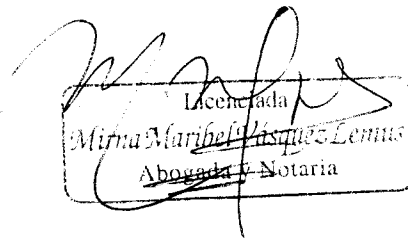 Licenciada
Mirna Maribel Vásquez Lemus
Abogada y Notaria